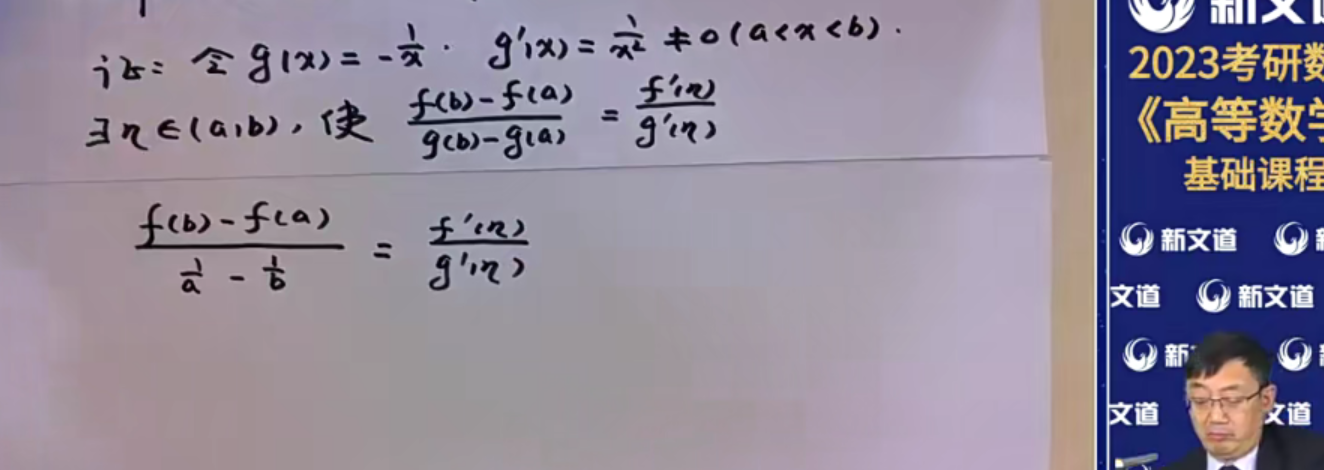 证: 令 g(x) = -1/x . g'(x) = 1/x² ≠ 0 (a<x<b).
∃η∈(a,b), 使 (f(b)-f(a))/(g(b)-g(a)) = f'(η)/g'(η)
(f(b)-f(a))/(1/a - 1/b) = f'(η)/g'(η)
新文道
2023考研数
《高等数学
基础课程
新文道 新
文道 新文道
新 新
文道 文道